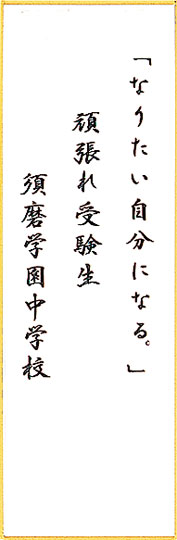 「なりたい自分になる。」
頑張れ受験生
須磨学園中学校